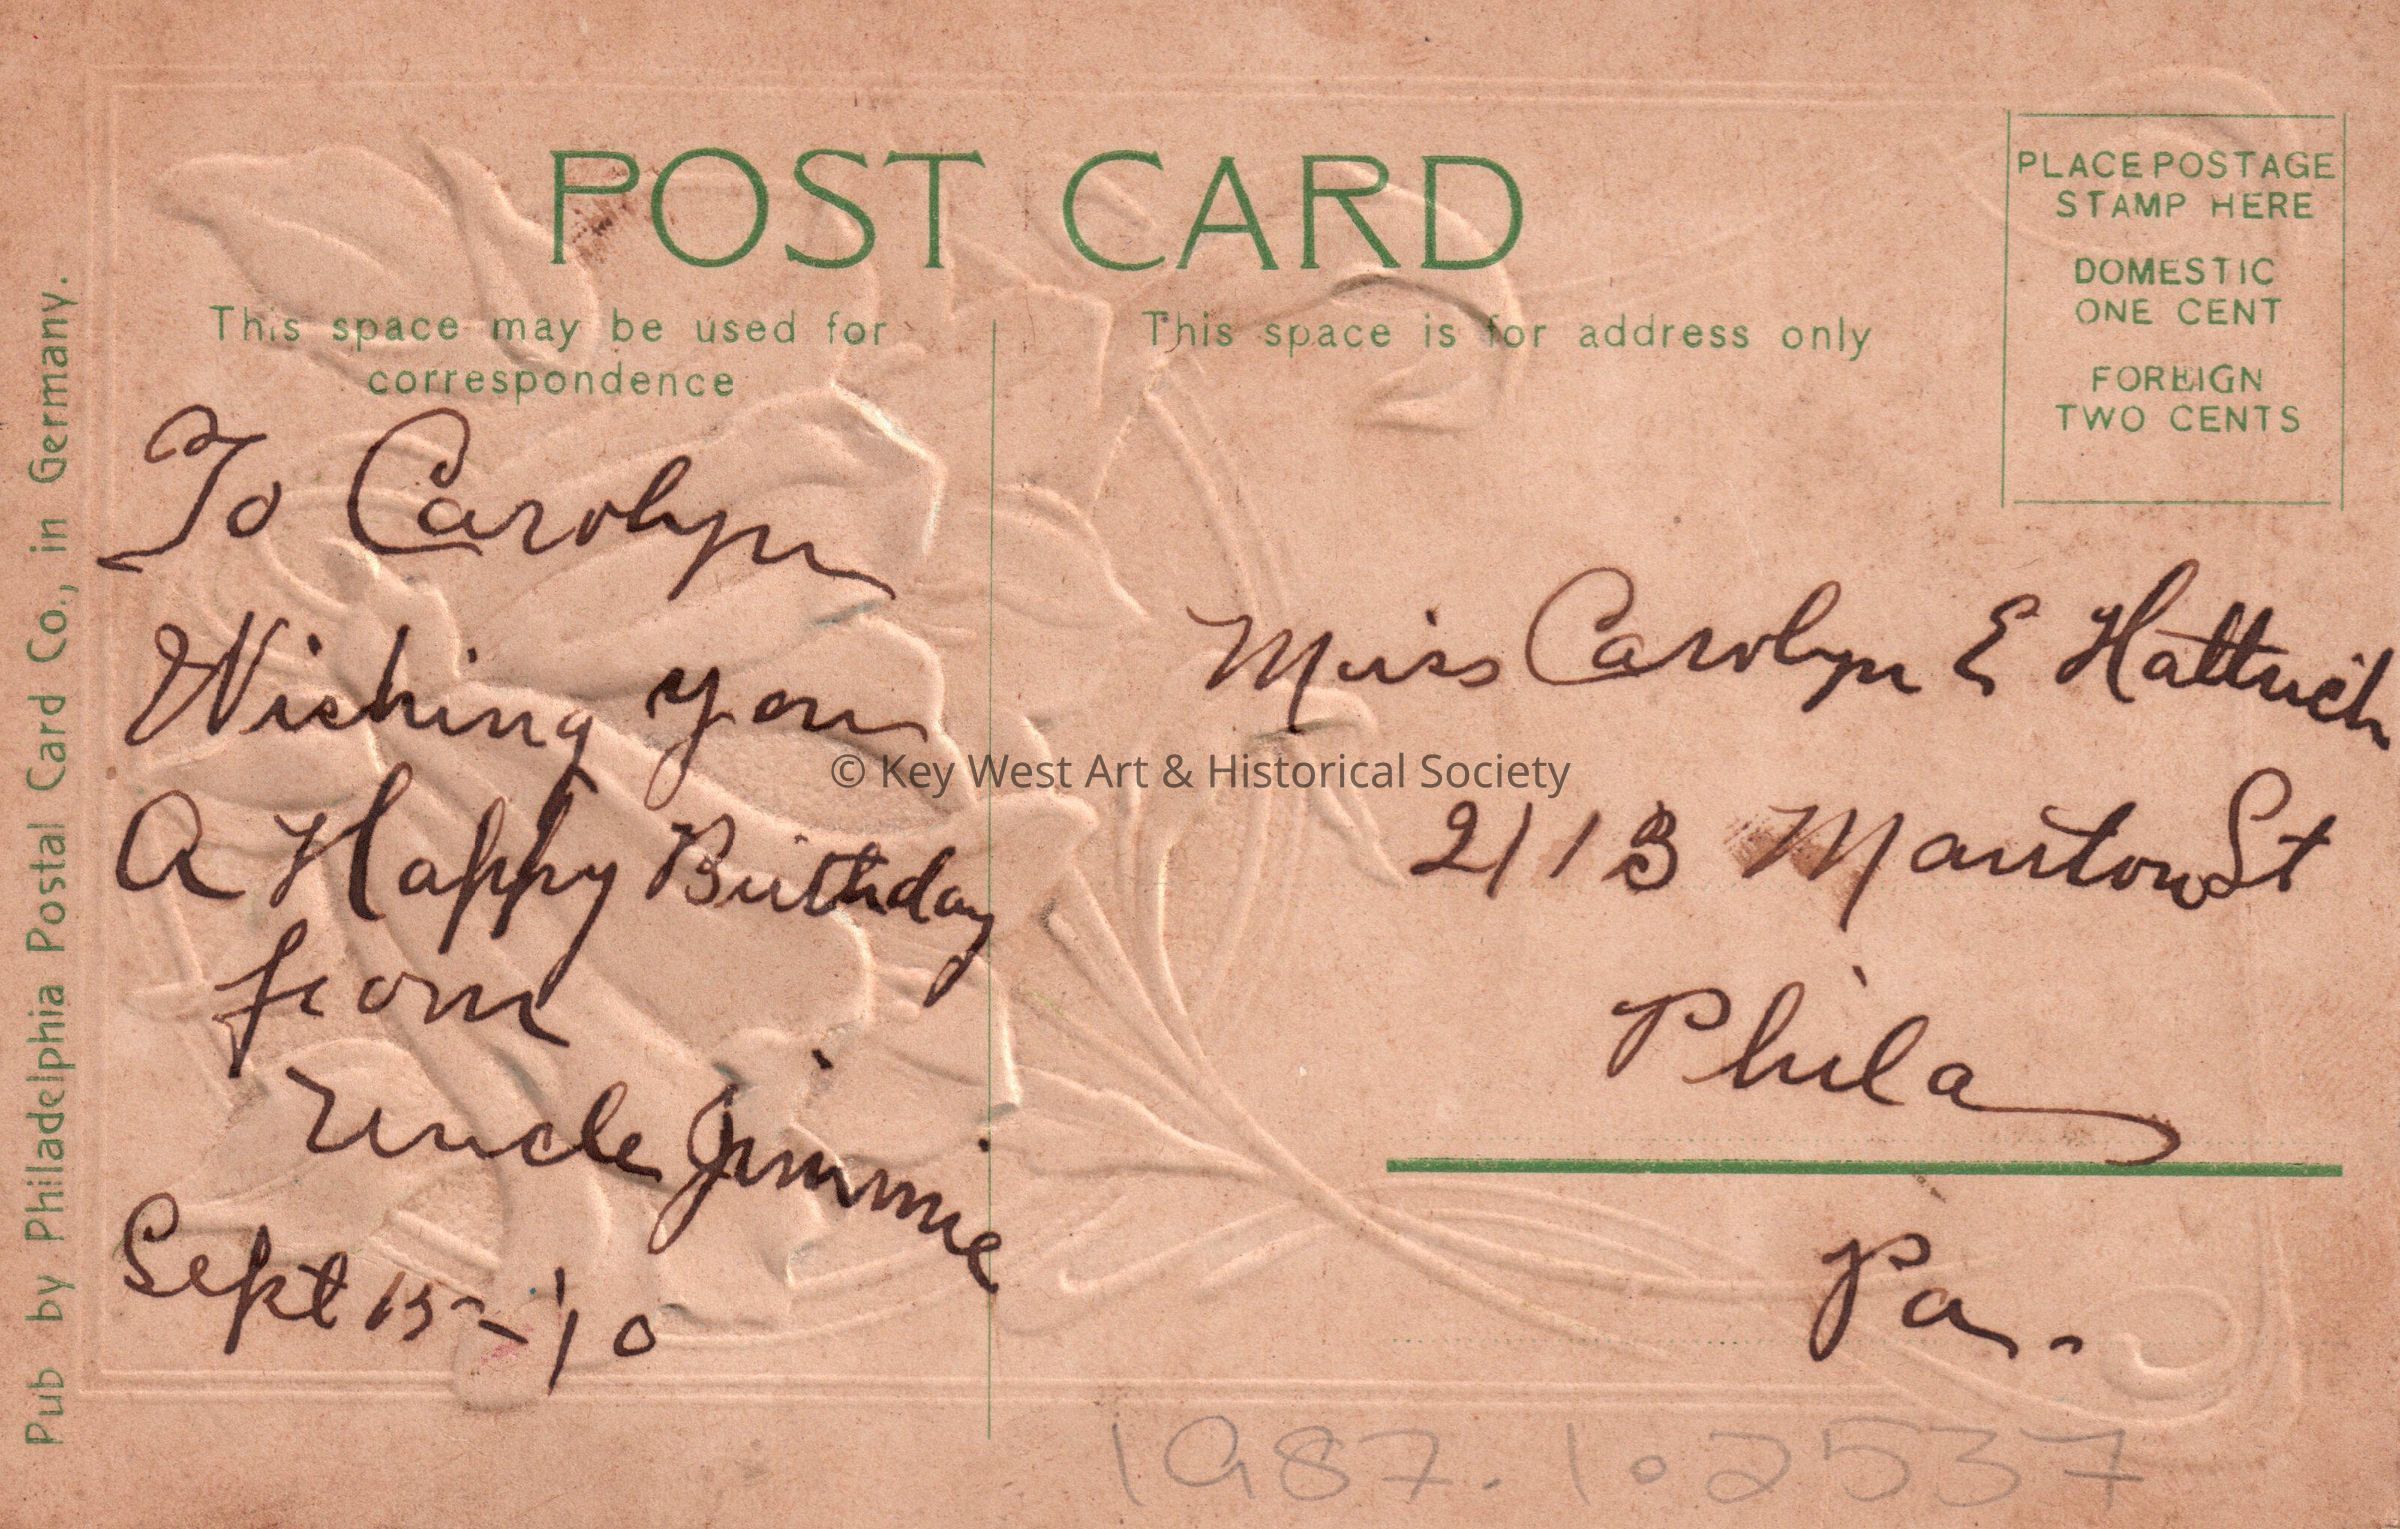 POST CARD
PLACE POSTAGE
STAMP HERE
DOMESTIC
ONE CENT
FOREIGN
TWO CENTS
This space may be used for
correspondence
This space is for address only
To Carolyn
Wishing you
A Happy Birthday
from
Uncle Jimmie
Sept 15 - '10
Miss Carolyn E Hattrich
2113 Manton St
Phila
Pa.
Pub by Philadelphia Postal Card Co., in Germany.
© Key West Art & Historical Society
1987.1.2537